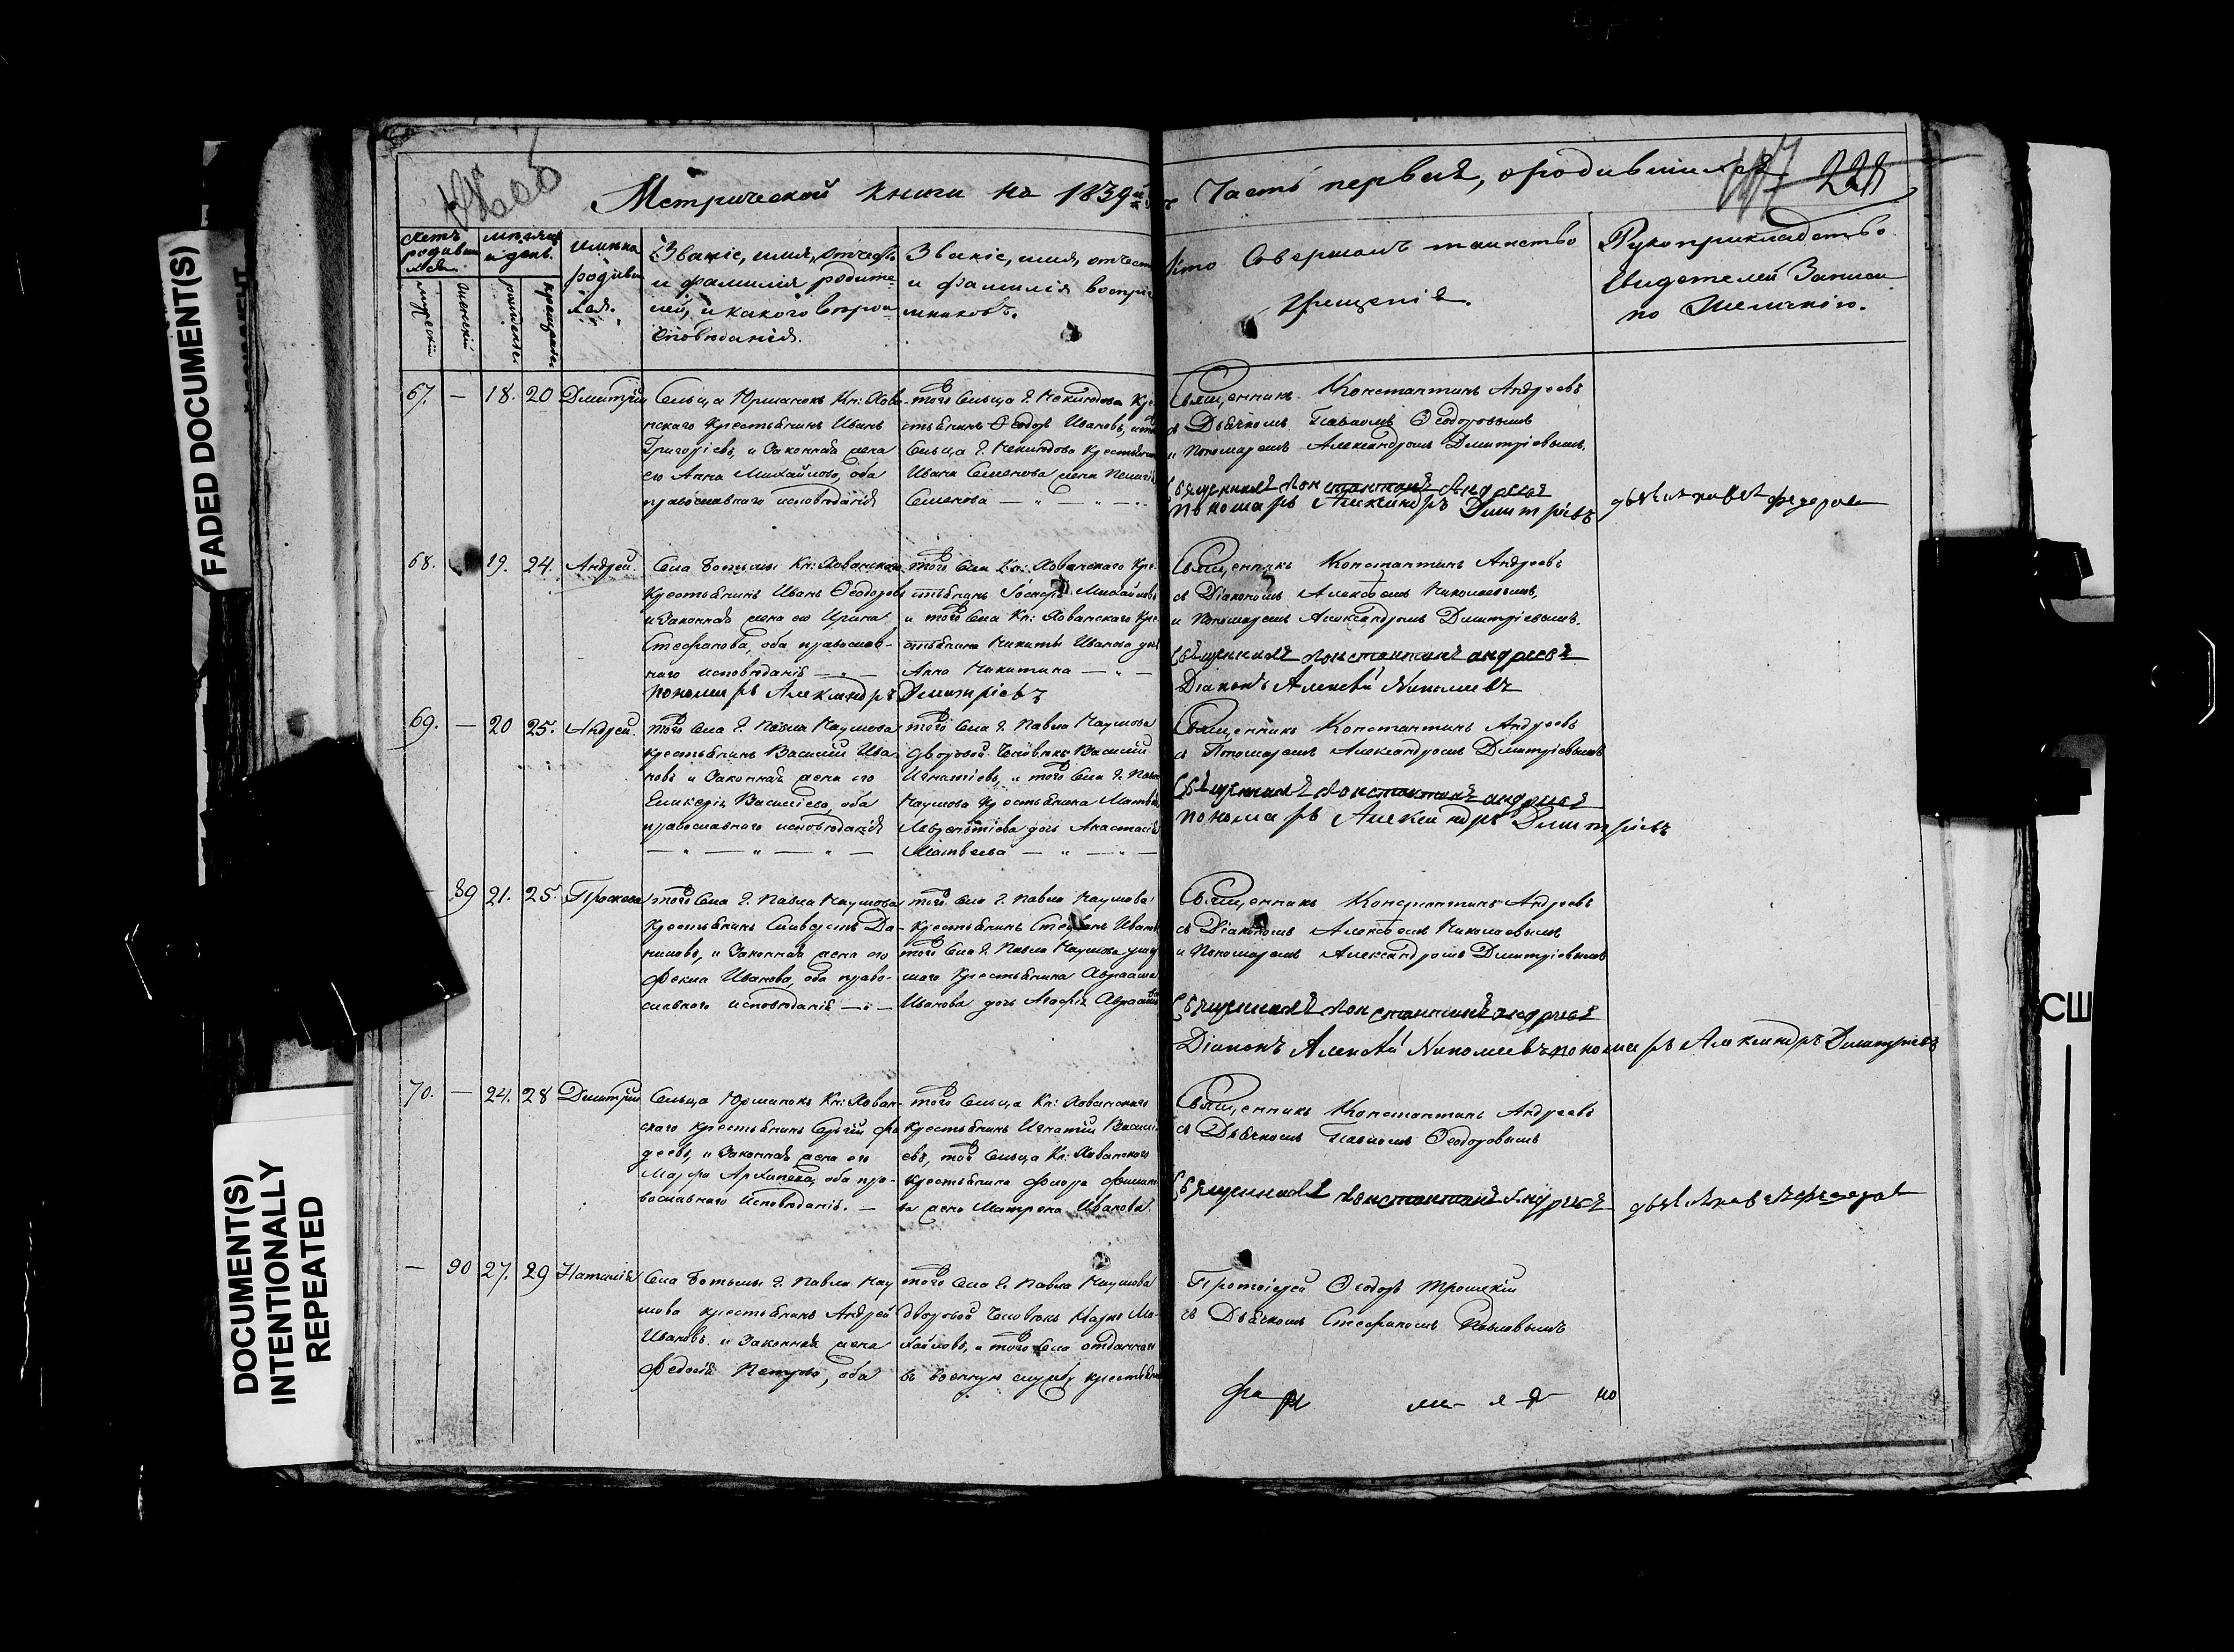 FADED DOCUMENT(S)
DOCUMENT(S)
INTENTIONALLY
REPEATED
Метрической книги на 1839й
Часть первая, о родившихся
228
Счетъ родивших
ся
мужескій
женскій
мѣсяцъ
и день.
рожденія
крещенія
Имена
родив
Званіе, имя, отчество
и фамилія родите-
лей, и какого вѣрои
сповѣданія.
Званіе, имя, отчест
и фамилія воспрі
емниковъ.
Кто Совершалъ таинство
крещенія.
Рукоприкладство
Свидетелей Записи
по Желанію.
67. — 18. 20 Дмитрій
Сельца Юрманокъ Кн: Хова-
нскаго Крестьянинъ Иванъ
Григорьевъ, и Законная жена
его Анна Михайлова, оба
православнаго исповѣданія
того Сельца Г. Неклюдова Кре
стьянинъ Ѳеодоръ Ивановъ,
Сельца Г. Неклюдова Крестьянина
Ивана Семенова жена
Семенова
Священникъ Константинъ Андреевъ
съ Дьячкомъ Павломъ Ѳеодоровымъ
и Пономаремъ Александромъ Димитріевымъ.
Священникъ Константинъ Андреевъ
пономарь Александръ Димитріевъ
дьячекъ павелъ федоровъ
68. 19. 24. Андрей.
Села Ботьмы Кн: Хованскаго
Крестьянинъ Иванъ Ѳеодоровъ
и Законная жена его Ирина
Стефанова, оба православ-
наго исповѣданія
пономарь Александръ Димитріевъ
того Села Кн: Хованскаго Кре-
стьянинъ Іосифъ Михайловъ
и того Села Кн: Хованскаго Кре-
стьянина Никиты Иванова дочь
Анна Никитина
Священникъ Константинъ Андреевъ
съ Діакономъ Алексѣемъ Николаевымъ,
и Пономаремъ Александромъ Димитріевымъ.
Священникъ Константинъ андреевъ
Діаконъ Алексѣй Николаевъ
69. — 20 25. Андрей.
того Села Г. Павла Наумова
крестьянинъ Василій Ива-
новъ и Законная жена его
Гликерія Васильева, оба
православнаго исповѣданія
того Села Г. Павла Наумова
дворовой Человѣкъ Василій
Игнатіевъ, и того Села Г. Павла
Наумова Крестьянина Матвѣя
Лаврентіева дочь Анастасія
Матвѣева
Священникъ Константинъ Андреевъ
съ Пономаремъ Александромъ Димитріевымъ
Священникъ Константинъ андреевъ
пономарь Александръ Димитріевъ
89 21. 25.
того Села Г. Павла Наумова
Крестьянинъ Сильверстъ Да-
ниловъ, и Законная жена его
Фекла Иванова, оба право-
славнаго исповѣданія
того Села Г. Павла Наумова
крестьянинъ Стефанъ Иванов
того Села Г. Павла Наумова
крестьянина Авраама
Иванова дочь Агафія
Священникъ Константинъ Андреевъ
съ Діакономъ Алексѣемъ Николаевымъ
и Пономаремъ Александромъ Димитріевымъ
Священникъ Константинъ андреевъ
Діаконъ Алексѣй Николаевъ пономарь Александръ Димитріевъ
70. — 24. 28 Дмитрій
Сельца Юрманокъ Кн: Хован-
скаго крестьянинъ Сергій Фа
деевъ, и Законная жена его
Марфа Архипова, оба пра-
вославнаго Исповѣданія. —
того Сельца Кн: Хованскаго
крестьянинъ Игнатій Василі
евъ, того Сельца Кн: Хованскаго
крестьянина Флора Филип
ва жена Матрена Иванова.
Священникъ Константинъ Андреевъ
съ Дьячкомъ Павломъ Ѳеодоровымъ
Священникъ Константинъ Андреевъ
дьячекъ павелъ федоровъ
— 90 27. 29 Наталія
Села Ботьмы Г. Павла Нау
мова крестьянинъ Андрей
Ивановъ и Законная жена
Федосія Петрова, оба
того Села Г. Павла Наумова
дворовой Человѣкъ Маркъ Ми-
хайловъ, и того Села отданнаго
въ военную службу крестьянина
Протоіерей Ѳеодоръ Троицкій
съ Дьячкомъ Стефаномъ Павловымъ
СШ